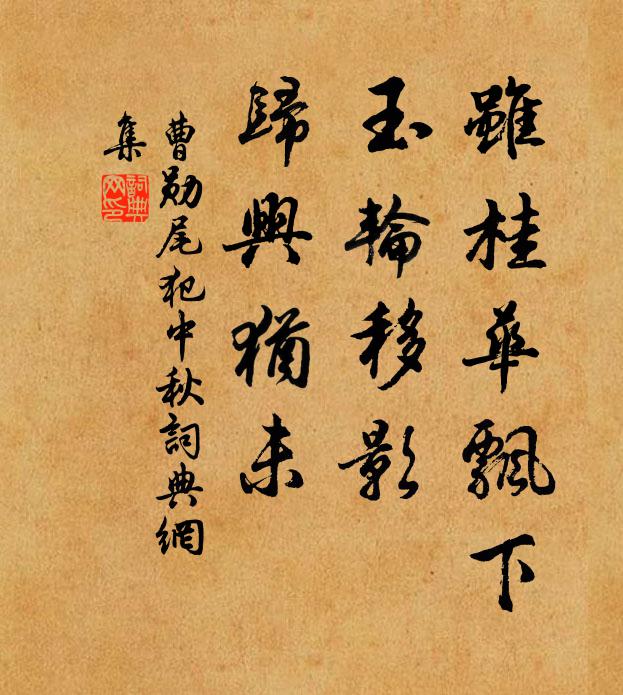 雖桂華飄下
玉輪移影
歸興猶未
曹勛尾犯中秋詞典網
集
詞典
网印